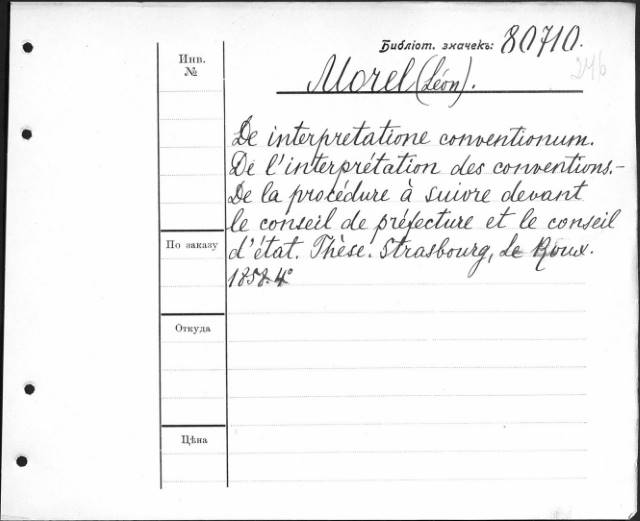 Библіот. значекъ: 80710.
246
Инв.
№
Morel (Léon).
De interpretatione conventionum.
De l'interprétation des conventions.-
De la procédure à suivre devant
le conseil de préfecture et le conseil
По заказу
d'état. Thèse. Strasbourg, Le Roux.
1858. 4°
Откуда
Цѣна